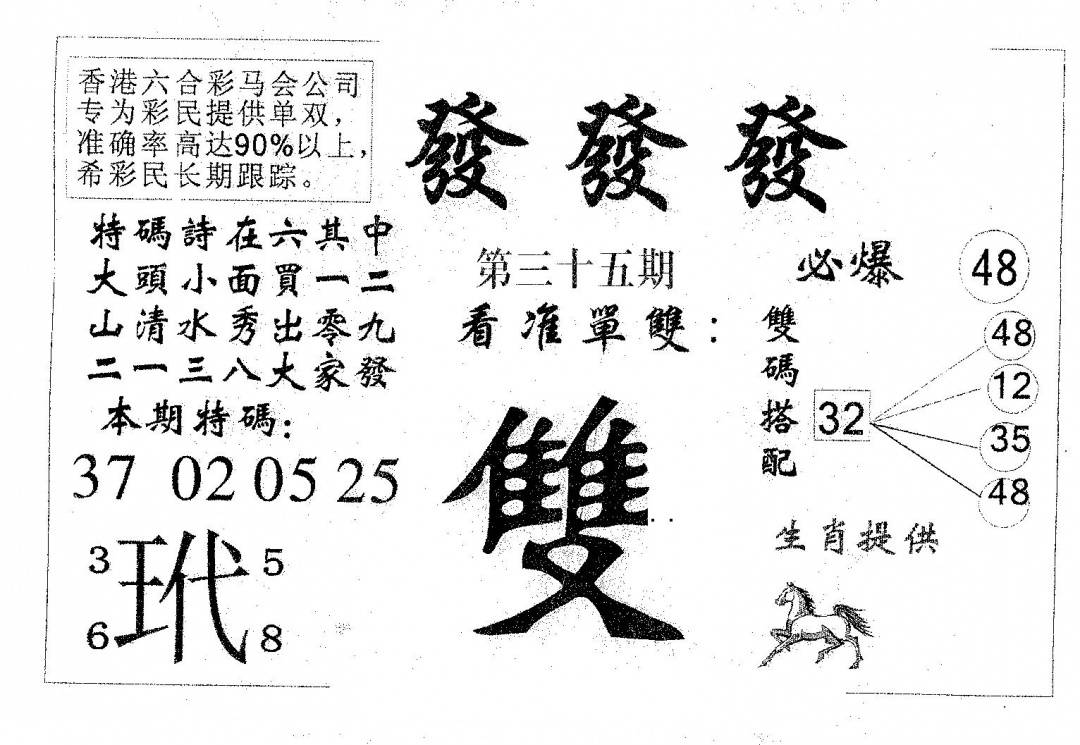 香港六合彩马会公司
专为彩民提供单双，
准确率高达90%以上，
希彩民长期跟踪。
發 發 發
特碼詩在六其中
大頭小面買一二
山清水秀出零九
二一三八大家發
本期特碼：
37 02 05 25
3 5
玳
6 8
第三十五期
看准單雙：
雙
必爆 48
雙碼搭配
32
48
12
35
48
生肖提供